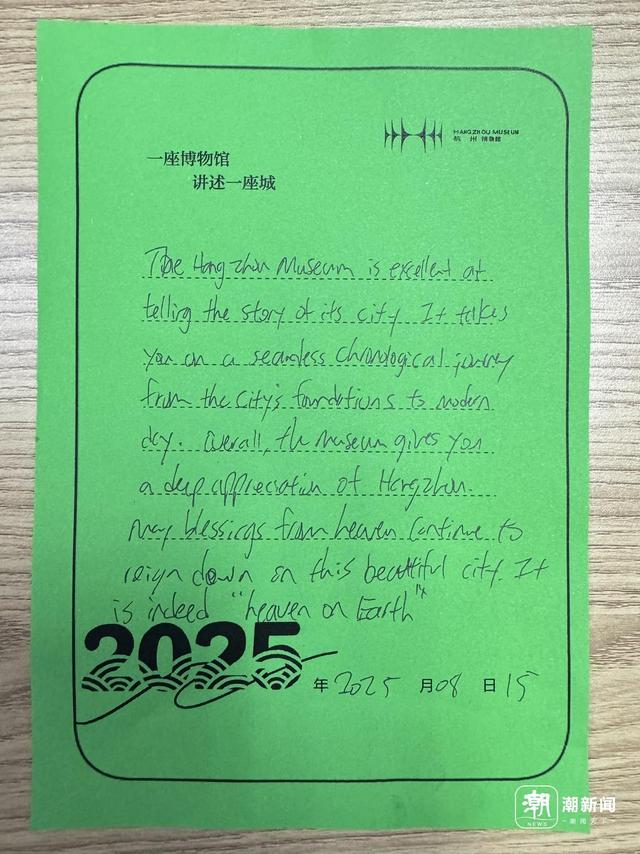 HANGZHOU MUSEUM
杭州博物馆
一座博物馆
讲述一座城
The Hangzhou Museum is excellent at
telling the story of its city. It takes
you on a seamless chronological journey
from the city's foundations to modern
day. Overall, the museum gives you
a deep appreciation of Hangzhou.
May blessings from heaven continue to
reign down on this beautiful city. It
is indeed "heaven on Earth"
2025
年 2025 月 08 日 15
潮 潮新闻
NEWS